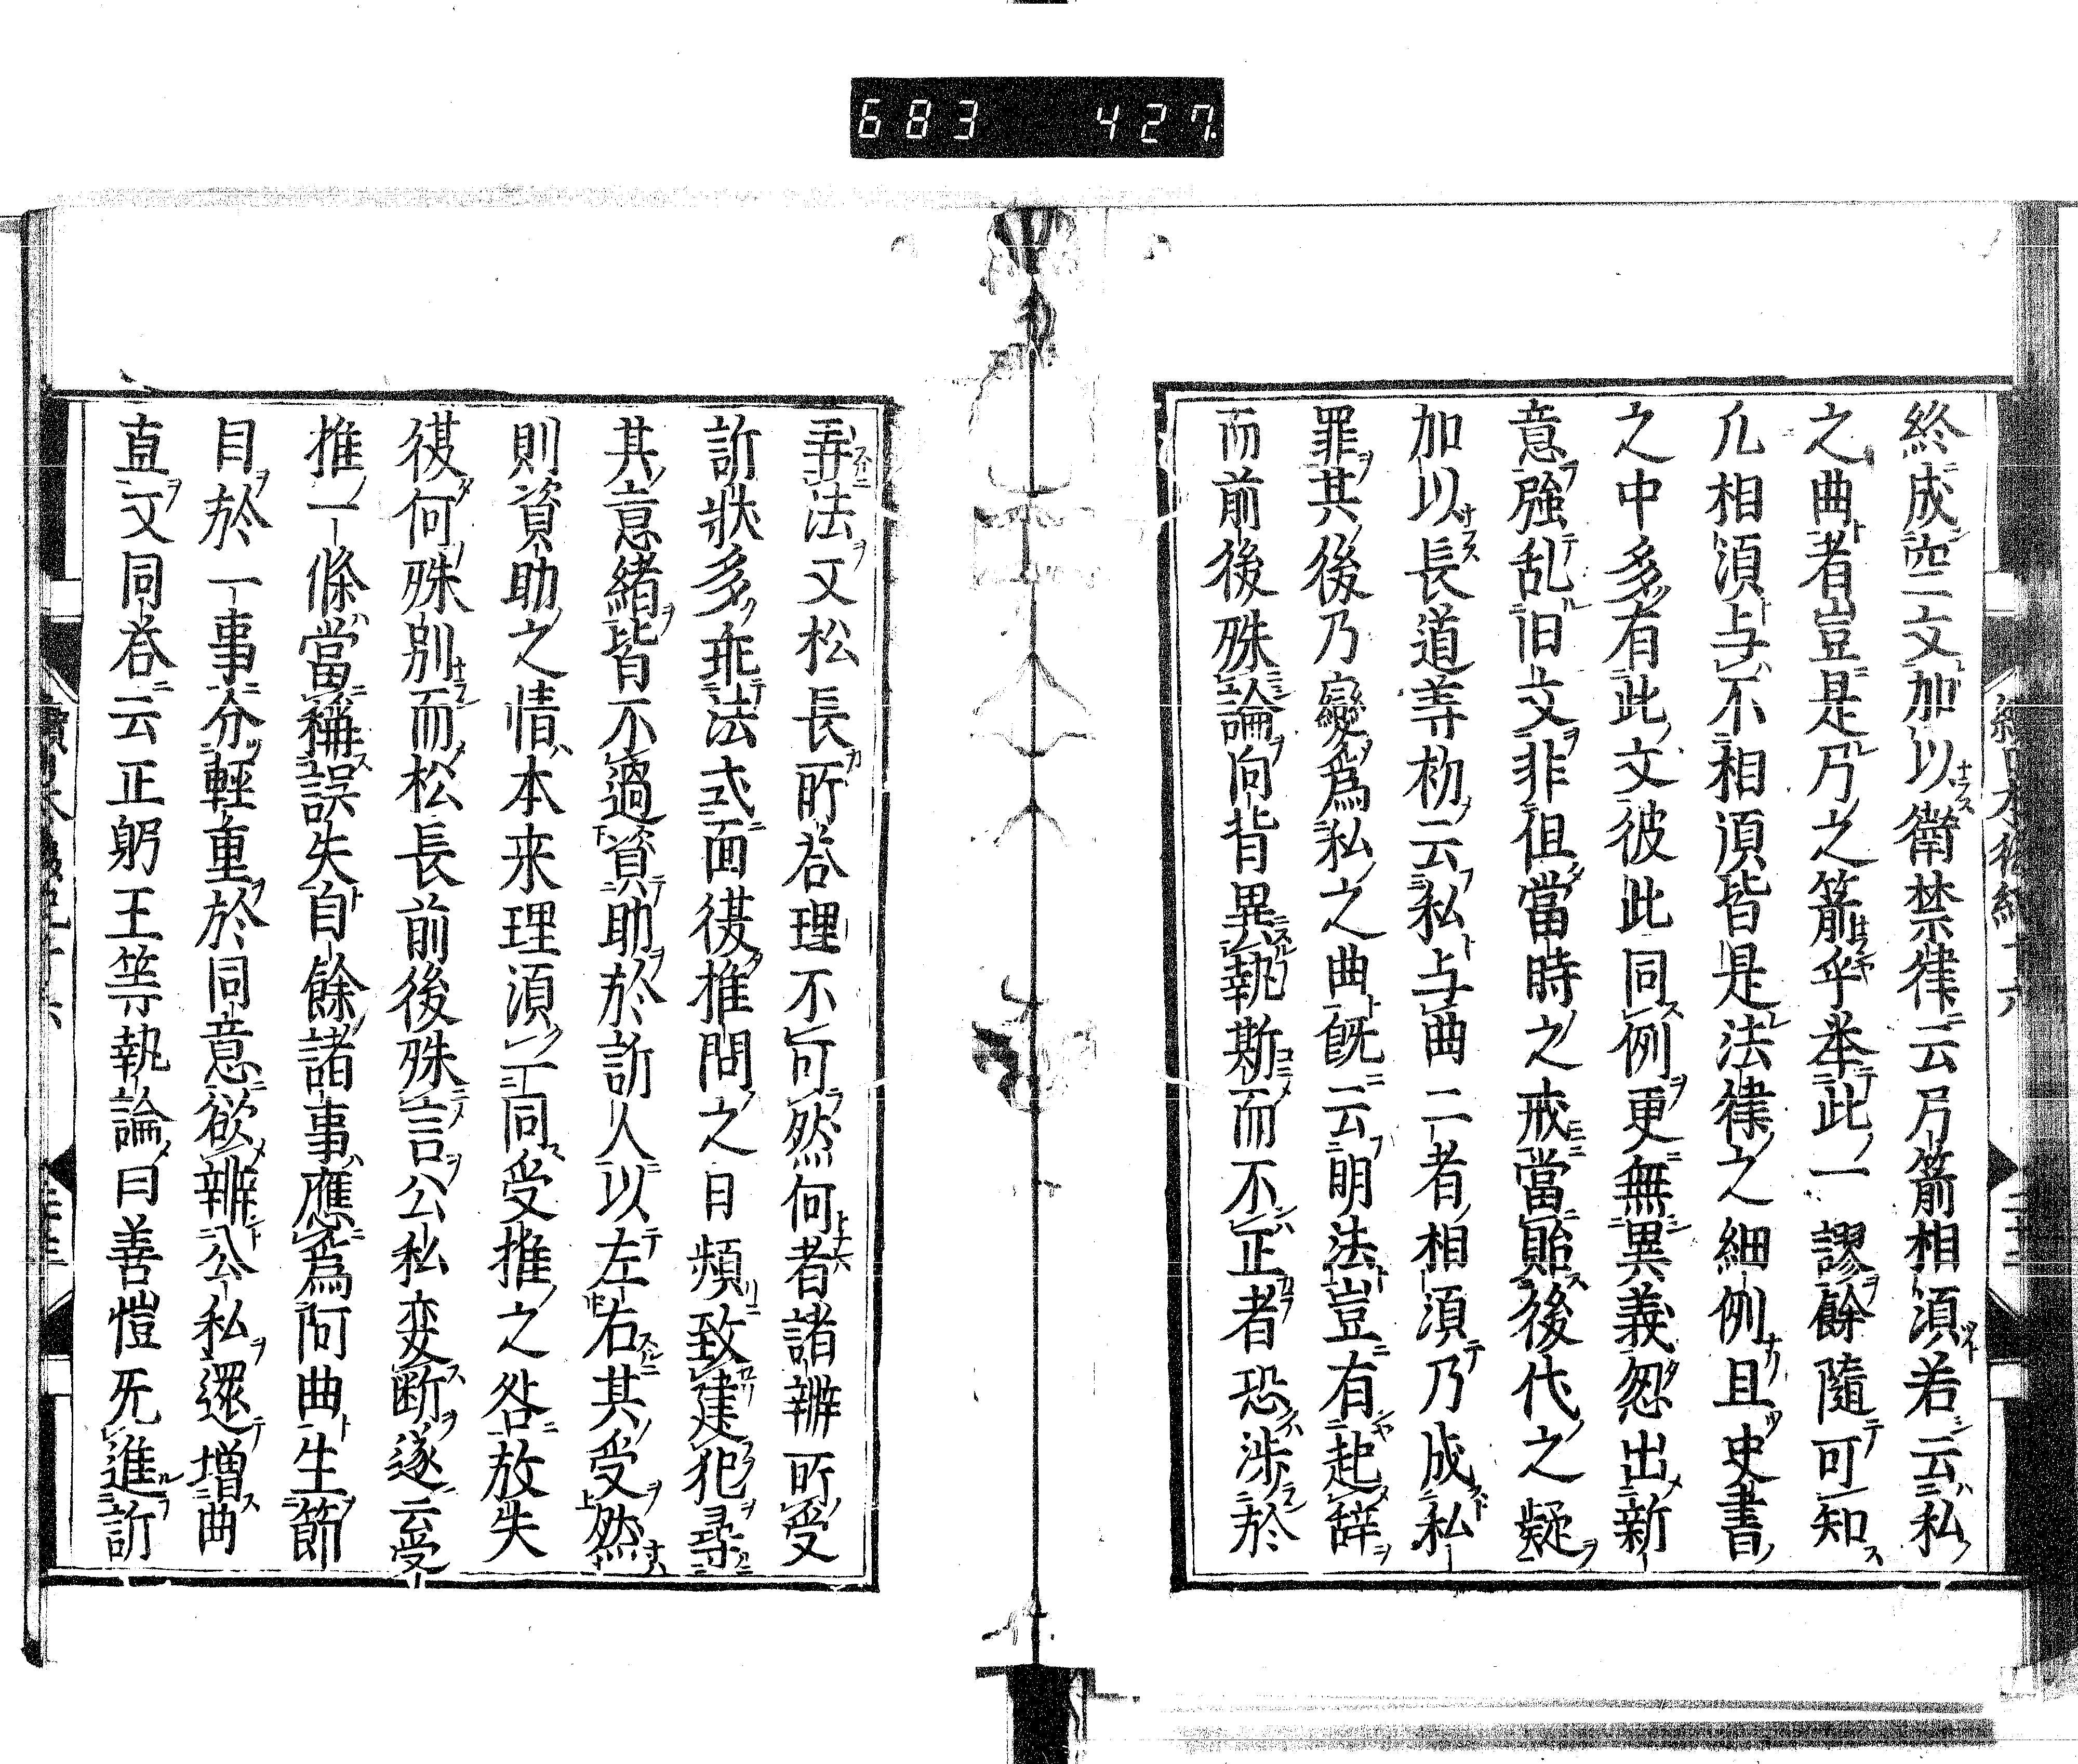 683 427
終成空文加以衛禁律云弓箭相湏若云私
之曲者豈是乃之箭乎挙此一謬餘隨可知
凡相湏与不相湏皆是法律之細例且史書
之中多有此文彼此同例更無異義忽出新
意強乱旧文非徂當時之戒當貽後代之疑
加以長道善枌云私与曲二者相湏乃成私
罪其後乃變為私之曲既云明法豈有起辞
而前後殊論向背異執斯而不正者恐渉於
弄法又松長所咎理不可然何者諸辨所受
訴状多乖法式面従推問之日頻致違犯尋
其意緒皆不過資助於訴人以左右其受然
則資助之情本来理湏一同受推之咎放失
従何殊別而松長前後殊言公私変断遂云受
推一條當稱誤失自餘諸事應為阿曲生節
目於一事分輕重於同意欲辨公私還増曲
直文同咎云正躬王等執論曰善愷旡進訴
續日本後紀十六